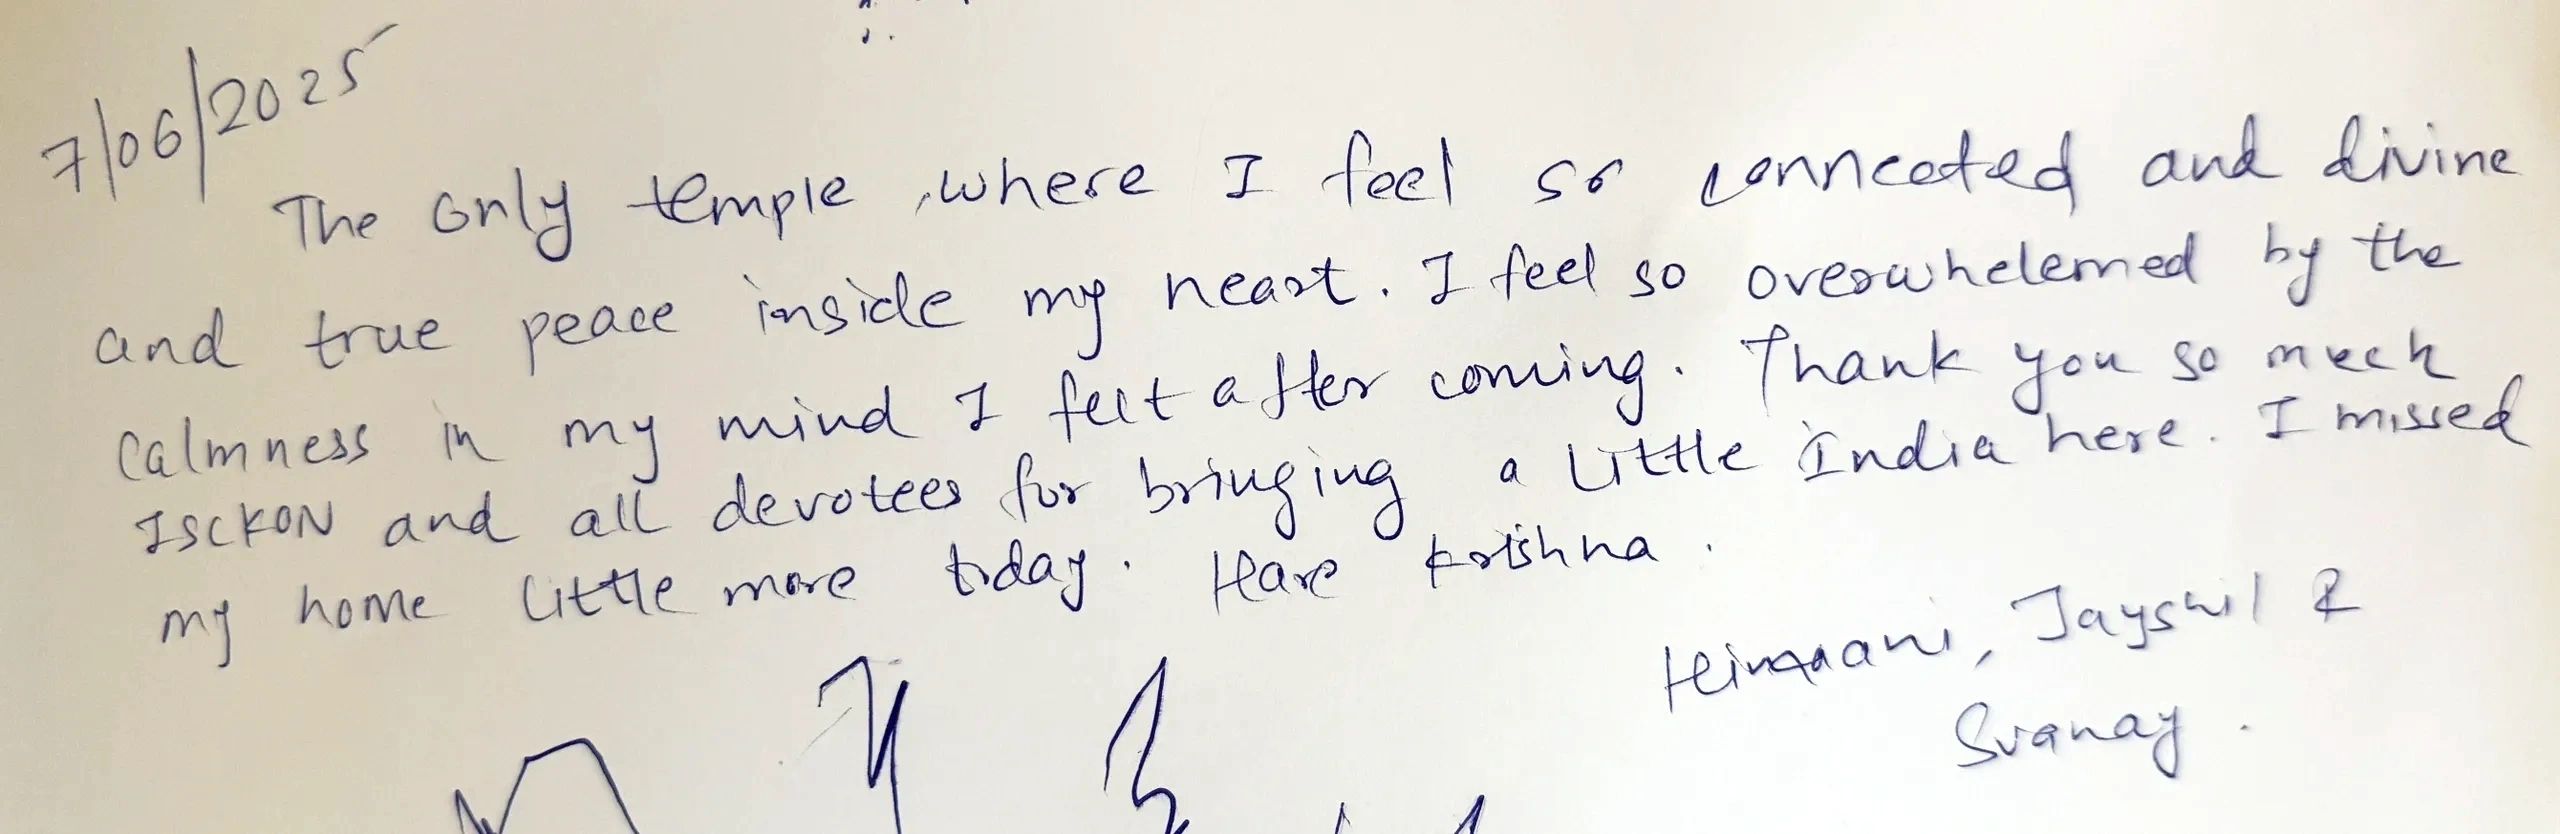 7/06/2025
The only temple, where I feel so connected and divine
and true peace inside my heart. I feel so overwhelemed by the
Calmness in my mind I felt after coming. Thank you so much
ISCKON and all devotees for bringing a little India here. I missed
my home little more today. Hare Krishna.
Himaani, Jayshil &
Svanay.